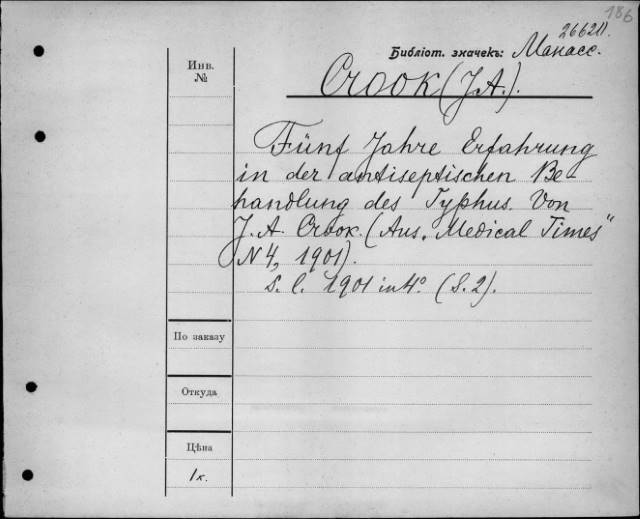 186
26621.
Библіот. значекъ: Манасс.
Инв. №
Crook (J.A.).
Fünf Jahre Erfahrung
in der antiseptischen Be-
handlung des Typhus. Von
J. A. Crook. (Aus „Medical Times"
N 4, 1901).
s. l. 1901 in 4° (S. 2).
По заказу
Откуда
Цѣна
1 к.